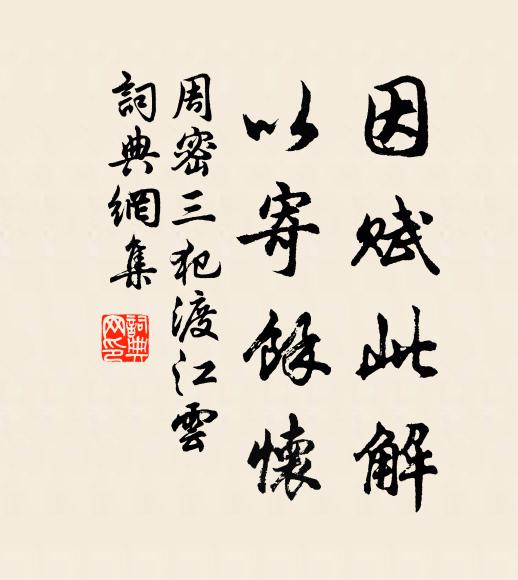 因賦此解
以寄餘懷
周密三犯渡江雲
詞典網集
詞典網印